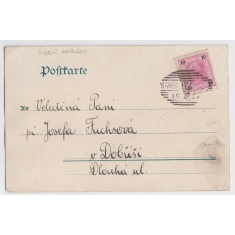 Postkarte
An Velectěná Paní
pí Josefa Fuchsová
v Dobříši
Dlouhá ul.